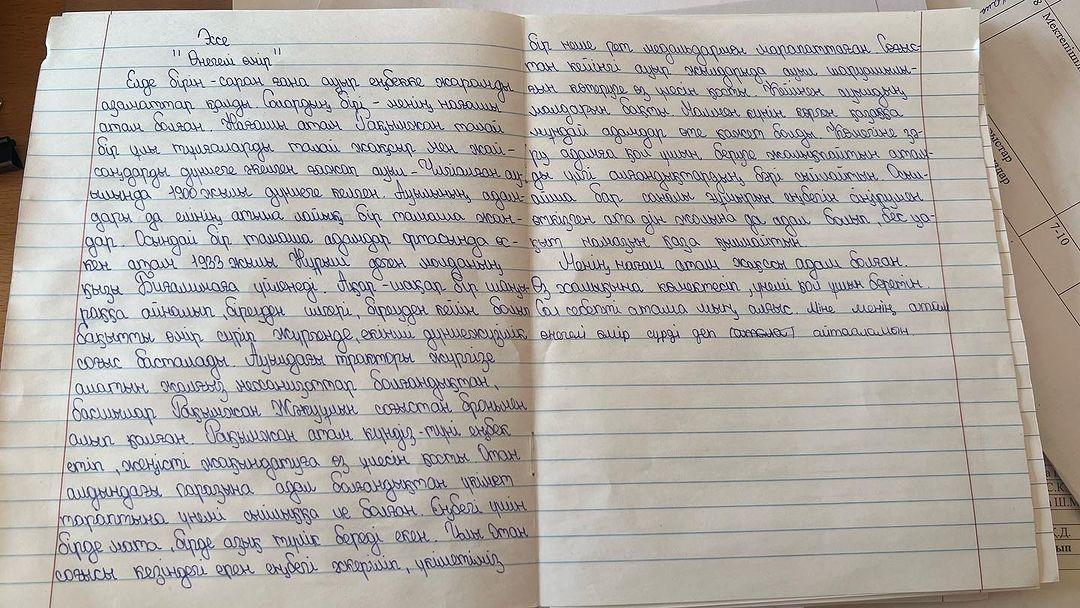 Эссе
"Өнегелі өмір"
Елде бірін-саран ғана ауыр еңбекке жарамды
азаматтар қалды Солардың бірі - менің нағашы
атам болған. Нағашы атам Рақымжан талай
бір ұлы тұлғаларды талай жақсыр мен жай-
саңдарды дүниеге келген ғажап ауыл -
ылында 1900 жылы дүниеге келген. Ауылының адам-
дары да елінің атына лайық бір тамаша жан-
дар. Осындай бір тамаша адамдар ортасында өс-
кен атам 1933 жылы Нұрыш деген молданың
қызы үйленеді. Ақар-шақар бір шаңы-
раққа айналып, біреуден ілгері, біреуден кейін болып
бақытты өмір сүріп жүргенде, екінші дүниежүзілік
соғыс басталады. Ауылдағы тракторы жүргізе
алатын жалғыз механизаттар болғандықтан,
басшылар Рақымжан соғыстан броньмен
алып қалған. Рақымжан атам күндіз-түні еңбек
етіп, жеңісті жақындатуға өз үлесін қосты Отан
алдындағы парызына адал болғандықтан үкімет
тарапына үнемі сыйлыққа ие болған. Еңбегі үшін
бірде мата, бірде азық түлік береді екен. Ұлы Отан
соғысы кезіндегі ерен еңбегі ескеріліп, үкіметіміз
бір неше рет медальдармен марапаттаған Соғыс-
тан кейінгі ауыр жылдарда ауыл шаруашылы-
ғын көтеруге өз үлесін қосты Кейіннен ауылдың
малдарын бақты Малмен күнін көрген қазаққа
мұндай адамдар өте қажет болды Көмегіне зә-
ру адамға қол ұшын беруге жалықпайтын атам-
ды үлгі алғандықтардың бәрі сыйлайтын. Ақы-
лшма бар саналы ғұмырын еңбегін сіңірумен
өткізген ата дін жолына да адал болып, бес уа-
қыт намазын қаза қылмайтын.
Менің нағаш атам жақсы адам болған
Өз халықына көмектесіп, үнемі қол ұшын беретін.
Сол себепті аташа мың алғыс. Міне менің атам
өнегелі өмір сүрді деп айтааламын.
Мектепішілік
8
7.10
Қ.Д.